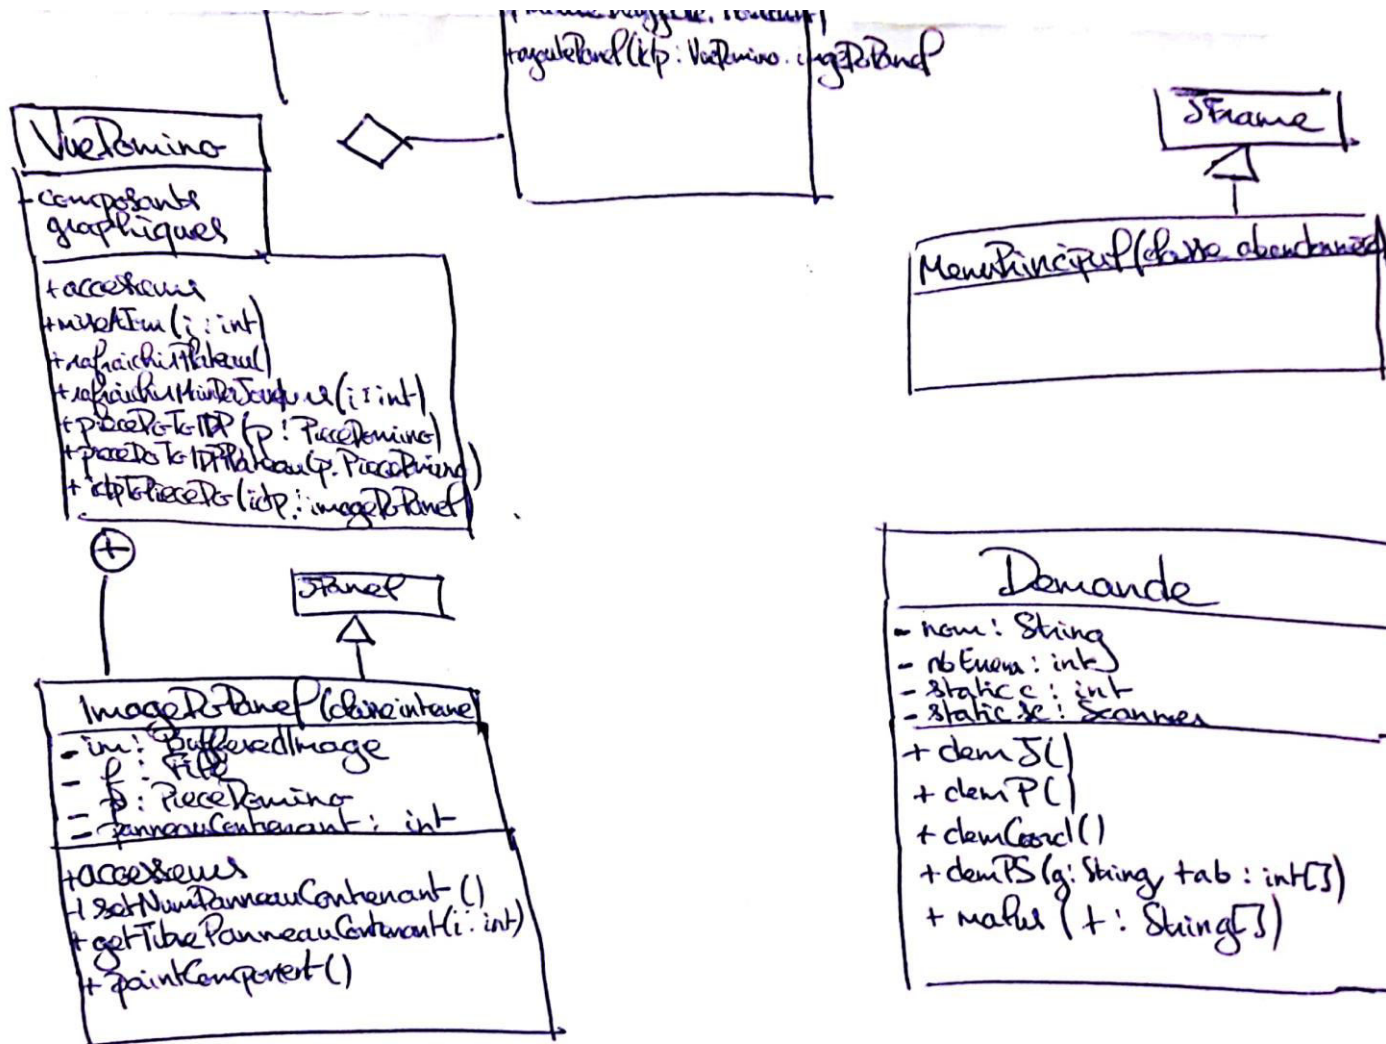 +ajoutePanel(idp: VueDomino.imageDoPanel
VueDomino
- composants
graphiques
+ accesseurs
+ miseAJour(i: int)
+ rafraichirPlateau()
+ rafraichirMainDeJoueurs(i: int)
+ pieceDoToIDP(p: PieceDomino)
+ pieceDoToIDPPlateau(p: PieceDomino)
+ idpToPieceDo(idp: imageDoPanel)
JPanel
ImageDoPanel (classe interne)
- im: BufferedImage
- f: File
- p: PieceDomino
- panneauContenant: int
+ accesseurs
+ setNumPanneauContenant()
+ getTitrePanneauContenant(i: int)
+ paintComponent()
JFrame
MenuPrincipal (classe abandonnée)
Demande
- nom: String
- : int
- static c: int
- static sc: Scanner
+ demJ()
+ demP()
+ demCoord()
+ demPS(g: String, tab: int[])
+ (t: String[])